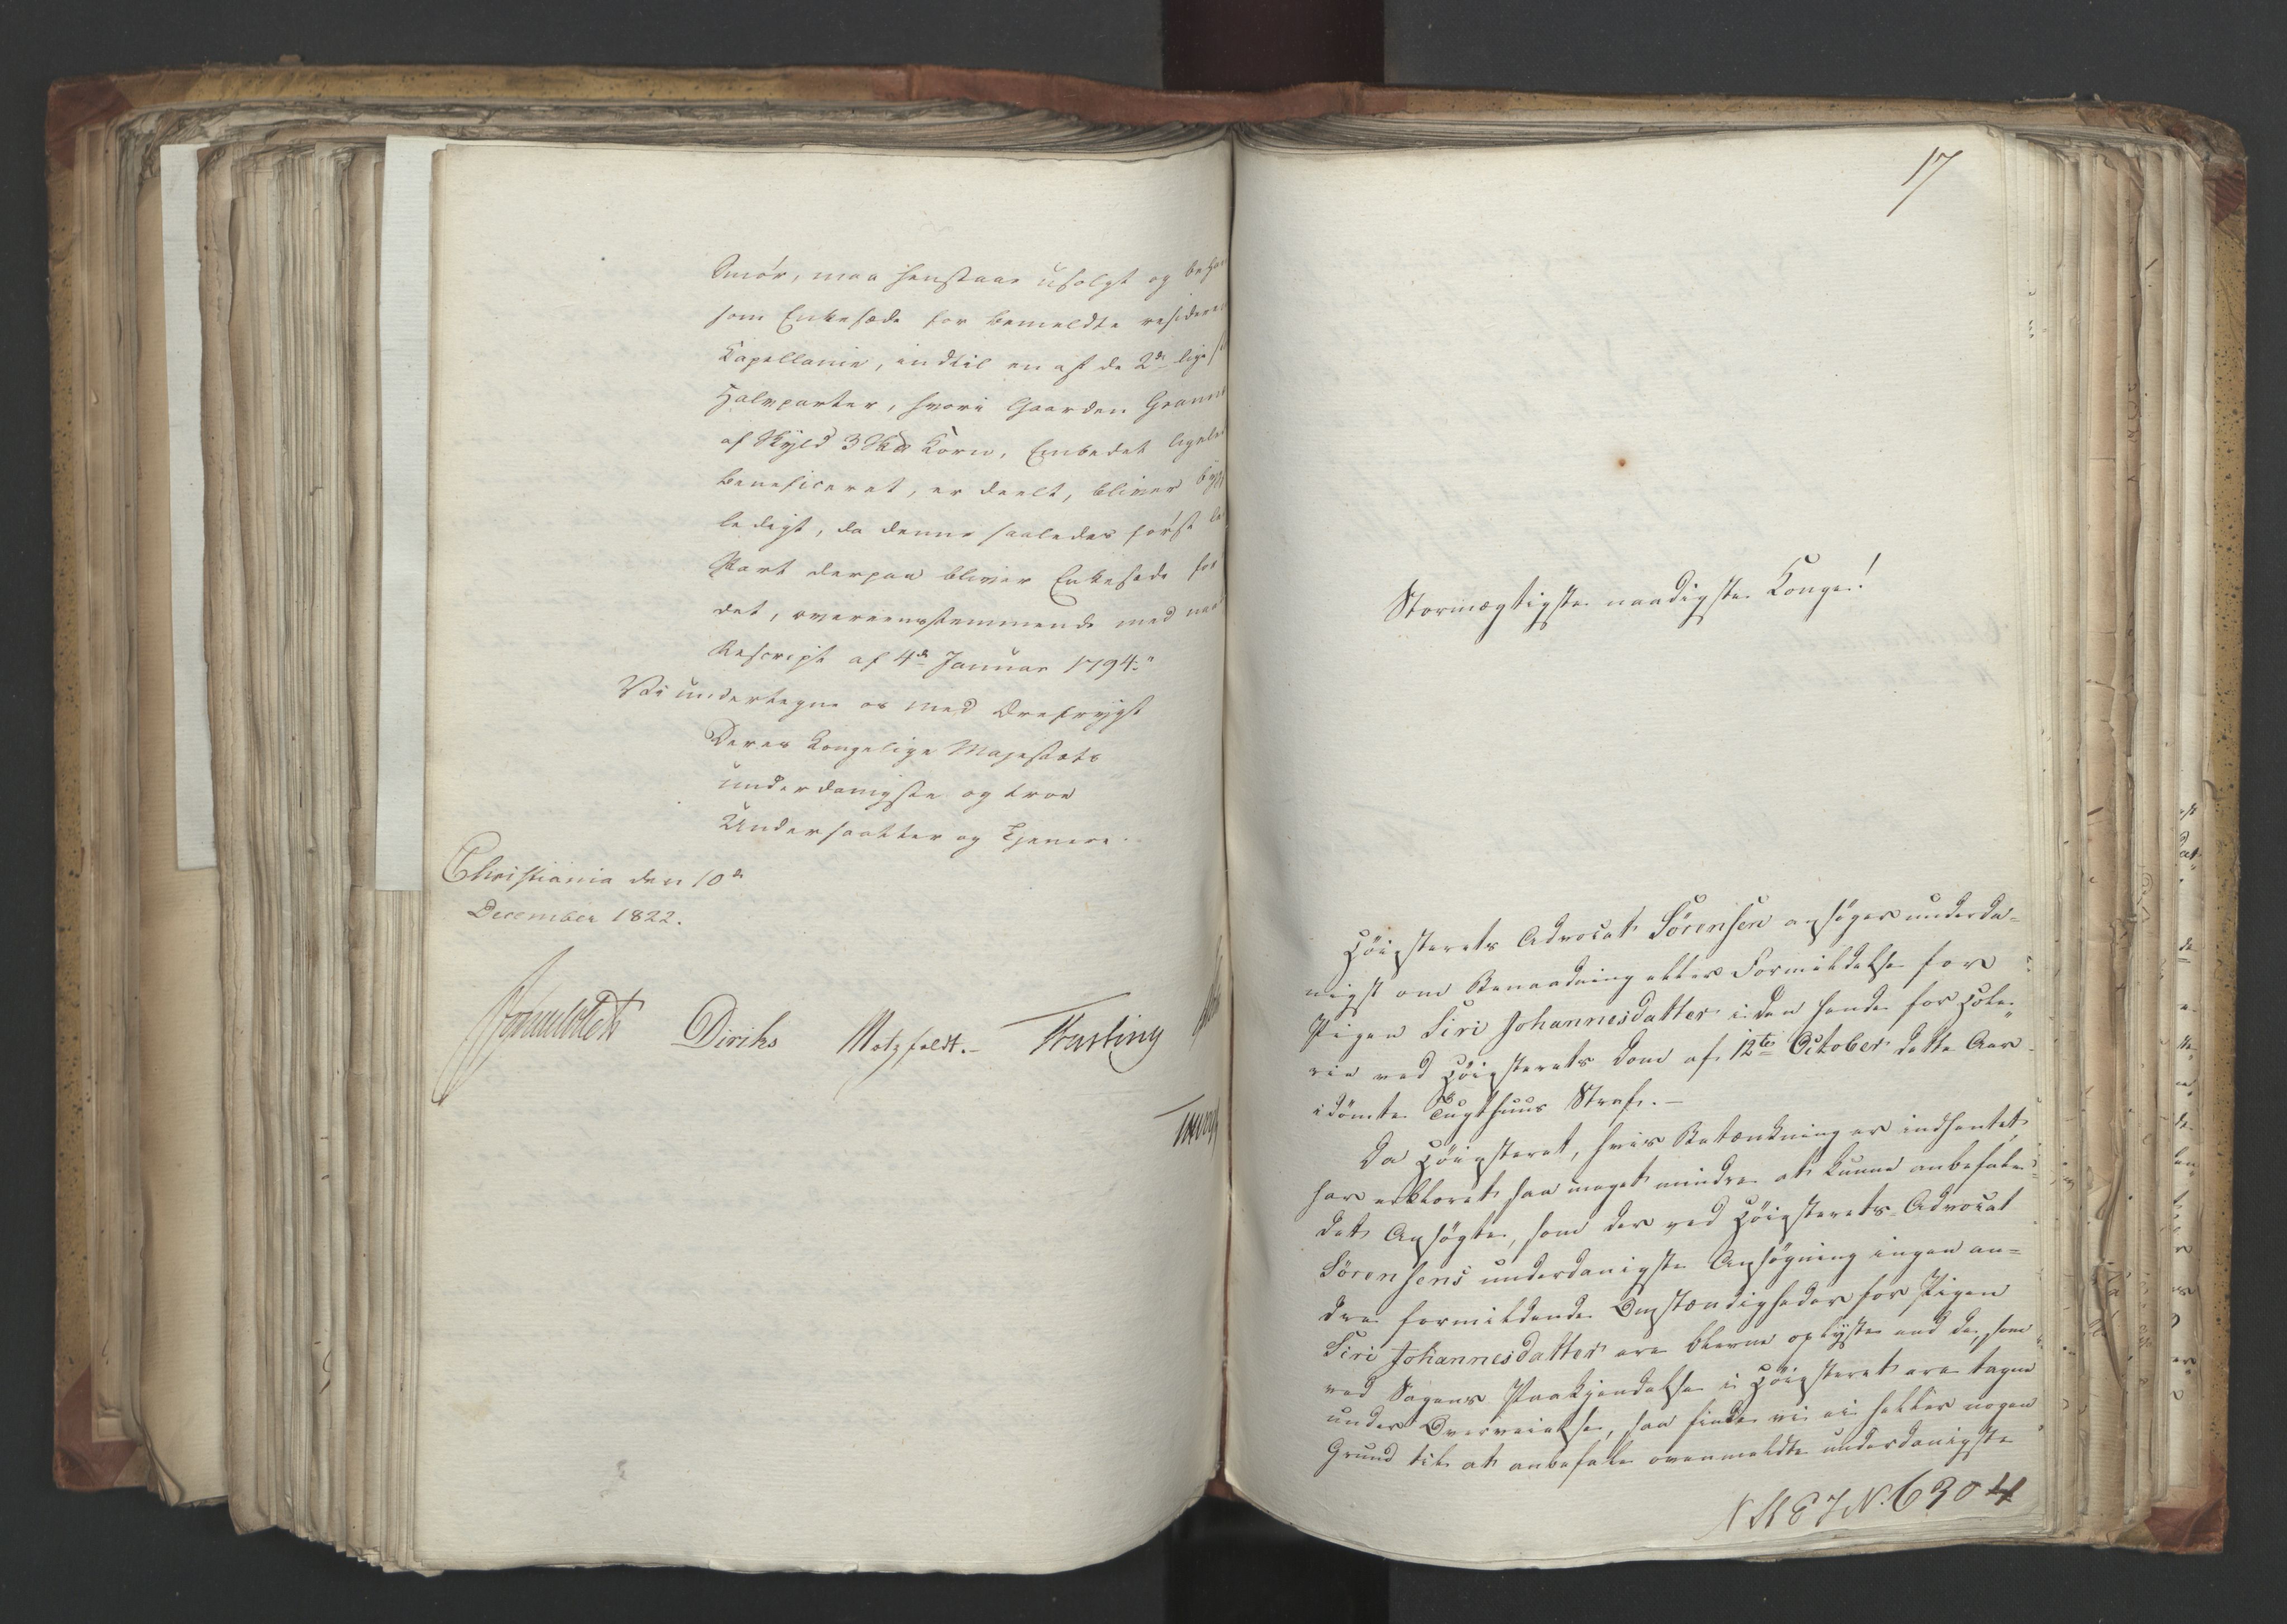 Smör, maa henstaae usolgt og
som Enkesæde for bemeldte
Kapellanie, indtil en af de 2de lige
Halvparter, hvori Gaarden
af Skyld 3 Korn, Embedet
beneficeret, er deelt, bliver
ledigt, da denne saaledes först
Part derpaa bliver Enkesæde for
det, overeensstemmende med
Rescript af 4de Januar 1794."
Vi undertegne os med Ærefrygt
Deres Kongelige Majestæts
underdanigste og troe
Undersaatter og Tjenere.
Christiania den 10de
December 1822.
Diriks Motzfeldt. Fasting
17
Stormægtigste naadigste Konge!
Höiesterets Advocat Sörensen ansöger underda-
nigst om Benaadning eller Formildelse for
Pigen Siri Johannesdatter i den hende for Hele-
rie ved Höiesterets Dom af 12te October dette Aar
idömte Tugthuus Straf.-
Da Höiesteret, hvis Betænkning er indhentet,
har erklæret saa meget mindre at kunne anbefale
det Ansögte, som der ved Höiesterets-Advocat
Sörensens underdanigste Ansögning ingen an-
dre formildende Omstændigheder for Pigen
Siri Johannesdatter ere blevne oplyste end de, som
ved Sagens Paakjendelse i Höiesteret ere tagne
under Overveielse, saa finde vi ei heller nogen
Grund til at anbefale ovenmeldte underdanigste
N. 6304